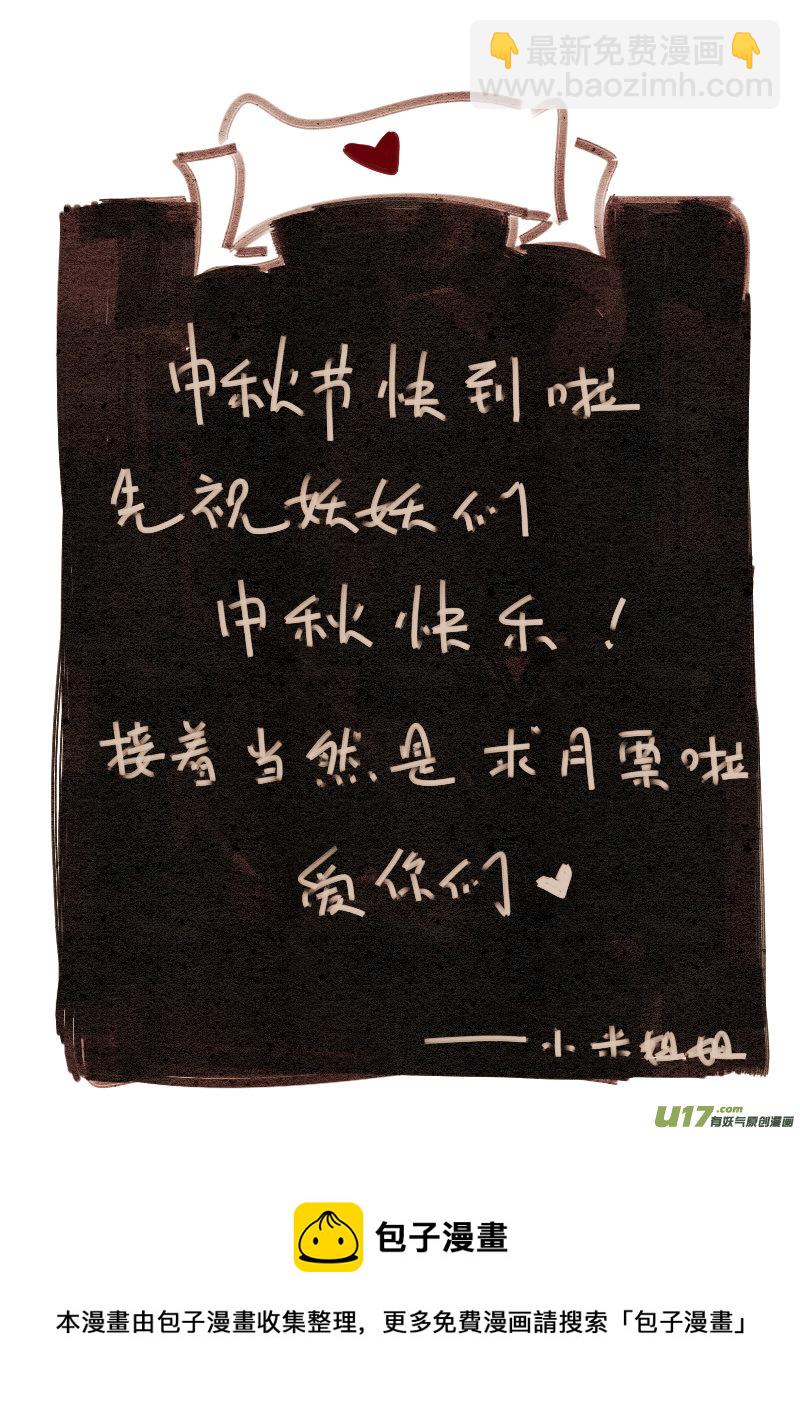 👇最新免费漫画👇
www.baozimh.com
中秋节快到啦
先祝妖妖们
中秋快乐！
接着当然是求月票啦
爱你们
——小米
U17.com
有妖气原创漫画
包子漫畫
本漫畫由包子漫畫收集整理，更多免費漫画請搜索「包子漫畫」